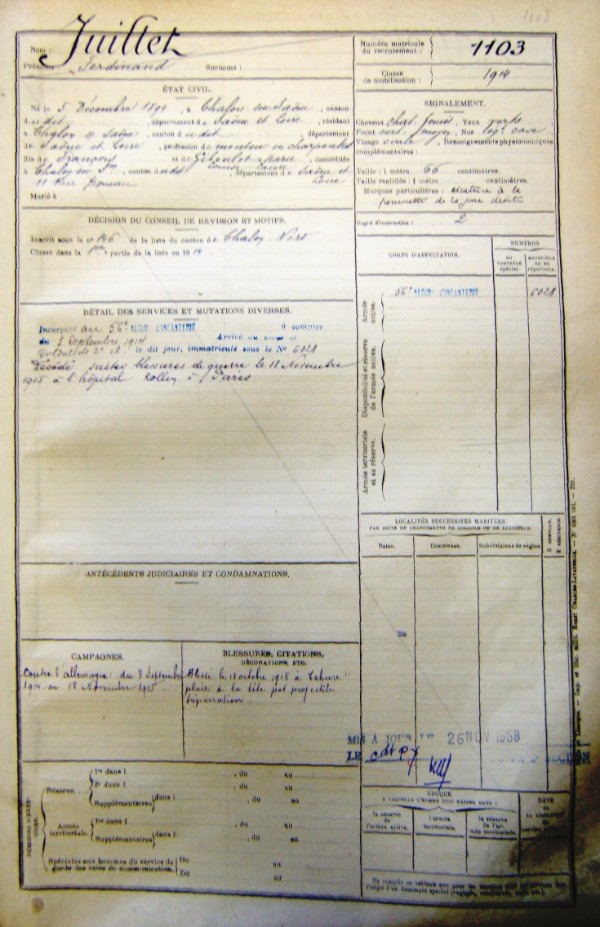 1103
Nom : Juillet
Prénoms : Ferdinand Surnoms :
Numéro matricule du recrutement : 1103
Classe de mobilisation : 1914
ÉTAT CIVIL.
Né le 5 Décembre 1894, à Chalon sur Saône, canton
d udit, département de Saône et Loire, résidant
à Chalon s/ Saône, canton d udit, département
de Saône et Loire, profession de monteur en charpentes
fils de François et de Marie, domiciliés
à Chalon sur, canton d udit, département de Saône et Loire
11 Rue
Marié à
SIGNALEMENT.
Cheveux chat. foncé Yeux
Front Nez
Visage Renseignements physionomiques
complémentaires :
Taille : 1 mètre 66 centimètres.
Taille rectifiée : 1 mètre centimètres.
Marques particulières : cicatrice à la
pommette de la joue droite
Degré d'instruction : 2
DÉCISION DU CONSEIL DE REVISION ET MOTIFS.
Inscrit sous le n° 146 de la liste du canton de Chalon Nord
Classé dans la 1ère partie de la liste en 1914
CORPS D'AFFECTATION.
NUMÉROS
au contrôle spécial.
matricule ou au répertoire.
Armée active.
56e RÉGIMT D'INFANTERIE 6028
Disponibilité et réserve de l'armée active.
Armée territoriale et sa réserve.
DÉTAIL DES SERVICES ET MUTATIONS DIVERSES.
Incorporé au 56e RÉGIMT D'INFANTERIE à compter
du 3 Septembre 1914 Arrivé au corps et
soldat de 2e cl. le dit jour, immatriculé sous le No 6028
Décédé suites blessures de guerre le 18 Novembre
1915 à l'hôpital Rollin à Paris
LOCALITÉS SUCCESSIVES HABITÉES
PAR SUITE DE CHANGEMENTS DE DOMICILE OU DE RÉSIDENCE.
Dates. Communes. Subdivisions de région.
D domicile.
R résidence.
ANTÉCÉDENTS JUDICIAIRES ET CONDAMNATIONS.
CAMPAGNES.
Contre l'allemagne : du 3 Septembre
1914 au 18 Novembre 1915
BLESSURES, CITATIONS,
DÉCORATIONS, ETC.
Blessé le 18 octobre 1915 à Tahure
plaie à la tête par projectile
MIS A JOUR LE 26 NOV 1958
LE
Réserve.
1re dans l , du au
2e dans l , du au
Supplémentaires dans l , du au
Armée territoriale.
1re dans l , du au
Supplémentaires dans l , du au
Spéciales aux hommes du service de
garde des voies de communication.
Du au
Du au
ÉPOQUE
A LAQUELLE L'HOMME DOIT PASSER DANS :
la réserve de l'armée active.
l'armée territoriale.
la réserve de l'armée territoriale.
DATE